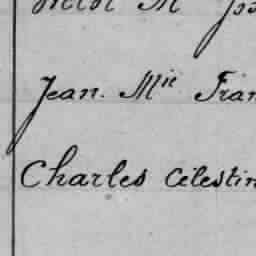 Jean. Mie Fran
Charles Célestin